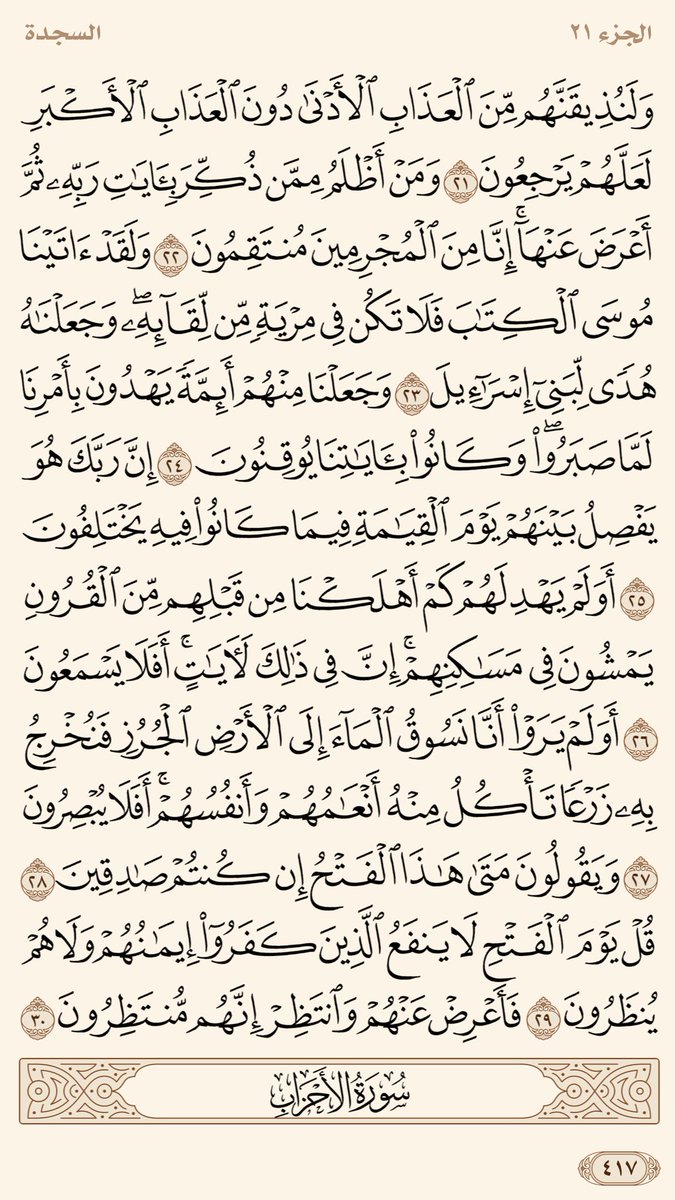 الجزء ٢١ السجدة
وَلَنُذِيقَنَّهُم مِّنَ ٱلْعَذَابِ ٱلْأَدْنَىٰ دُونَ ٱلْعَذَابِ ٱلْأَكْبَرِ
لَعَلَّهُمْ يَرْجِعُونَ ٢١ وَمَنْ أَظْلَمُ مِمَّن ذُكِّرَ بِـَٔايَـٰتِ رَبِّهِۦ ثُمَّ
أَعْرَضَ عَنْهَآ ۚ إِنَّا مِنَ ٱلْمُجْرِمِينَ مُنتَقِمُونَ ٢٢ وَلَقَدْ ءَاتَيْنَا
مُوسَى ٱلْكِتَـٰبَ فَلَا تَكُن فِى مِرْيَةٍ مِّن لِّقَآئِهِۦ ۖ وَجَعَلْنَـٰهُ
هُدًى لِّبَنِىٓ إِسْرَٰٓءِيلَ ٢٣ وَجَعَلْنَا مِنْهُمْ أَئِمَّةً يَهْدُونَ بِأَمْرِنَا
لَمَّا صَبَرُوا۟ ۖ وَكَانُوا۟ بِـَٔايَـٰتِنَا يُوقِنُونَ ٢٤ إِنَّ رَبَّكَ هُوَ
يَفْصِلُ بَيْنَهُمْ يَوْمَ ٱلْقِيَـٰمَةِ فِيمَا كَانُوا۟ فِيهِ يَخْتَلِفُونَ
٢٥ أَوَلَمْ يَهْدِ لَهُمْ كَمْ أَهْلَكْنَا مِن قَبْلِهِم مِّنَ ٱلْقُرُونِ
يَمْشُونَ فِى مَسَـٰكِنِهِمْ ۚ إِنَّ فِى ذَٰلِكَ لَـَٔايَـٰتٍ ۖ أَفَلَا يَسْمَعُونَ
٢٦ أَوَلَمْ يَرَوْا۟ أَنَّا نَسُوقُ ٱلْمَآءَ إِلَى ٱلْأَرْضِ ٱلْجُرُزِ فَنُخْرِجُ
بِهِۦ زَرْعًا تَأْكُلُ مِنْهُ أَنْعَـٰمُهُمْ وَأَنفُسُهُمْ ۚ أَفَلَا يُبْصِرُونَ
٢٧ وَيَقُولُونَ مَتَىٰ هَـٰذَا ٱلْفَتْحُ إِن كُنتُمْ صَـٰدِقِينَ ٢٨
قُلْ يَوْمَ ٱلْفَتْحِ لَا يَنفَعُ ٱلَّذِينَ كَفَرُوٓا۟ إِيمَـٰنُهُمْ وَلَا هُمْ
يُنظَرُونَ ٢٩ فَأَعْرِضْ عَنْهُمْ وَٱنتَظِرْ إِنَّهُم مُّنتَظِرُونَ ٣٠
سُورَةُ الأَحْزَابِ
٤١٧